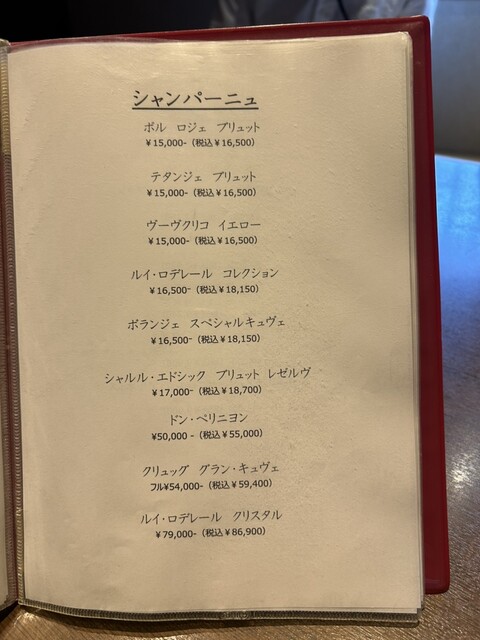 シャンパーニュ
ポル ロジェ ブリュット
¥15,000-（税込¥16,500）
テタンジェ ブリュット
¥15,000-（税込¥16,500）
ヴーヴクリコ イエロー
¥15,000-（税込¥16,500）
ルイ・ロデレール コレクション
¥16,500-（税込¥18,150）
ボランジェ スペシャルキュヴェ
¥16,500-（税込¥18,150）
シャルル・エドシック ブリュット レゼルヴ
¥17,000-（税込¥18,700）
ドン・ペリニヨン
¥50,000 -（税込¥55,000）
クリュッグ グラン・キュヴェ
フル¥54,000-（税込¥59,400）
ルイ・ロデレール クリスタル
¥79,000-（税込¥86,900）